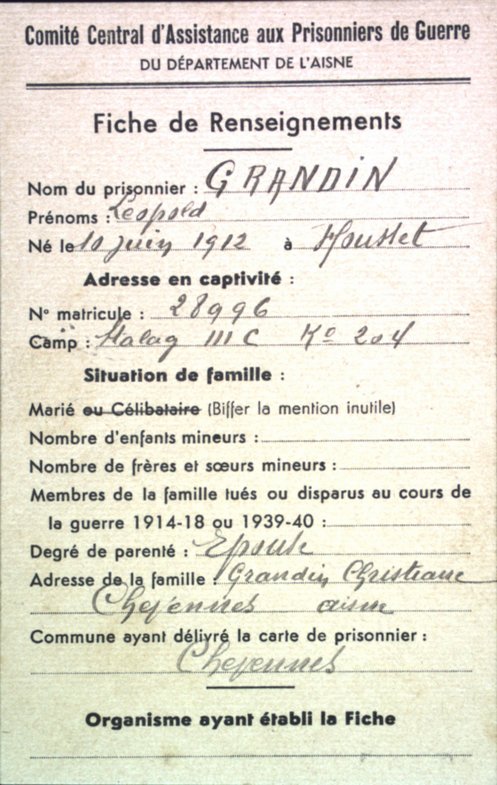 Comité Central d'Assistance aux Prisonniers de Guerre
DU DÉPARTEMENT DE L'AISNE
Fiche de Renseignements
Nom du prisonnier : GRANDIN
Prénoms : Léopold
Né le 10 juin 1912 à Housset
Adresse en captivité :
N° matricule : 28996
Camp : Stalag III C Ko 204
Situation de famille :
Marié ou Célibataire (Biffer la mention inutile)
Nombre d'enfants mineurs :
Nombre de frères et sœurs mineurs :
Membres de la famille tués ou disparus au cours de
la guerre 1914-18 ou 1939-40 :
Degré de parenté : Epouse
Adresse de la famille : Grandin Christiane
Chevennes aisne
Commune ayant délivré la carte de prisonnier :
Chevennes
Organisme ayant établi la Fiche